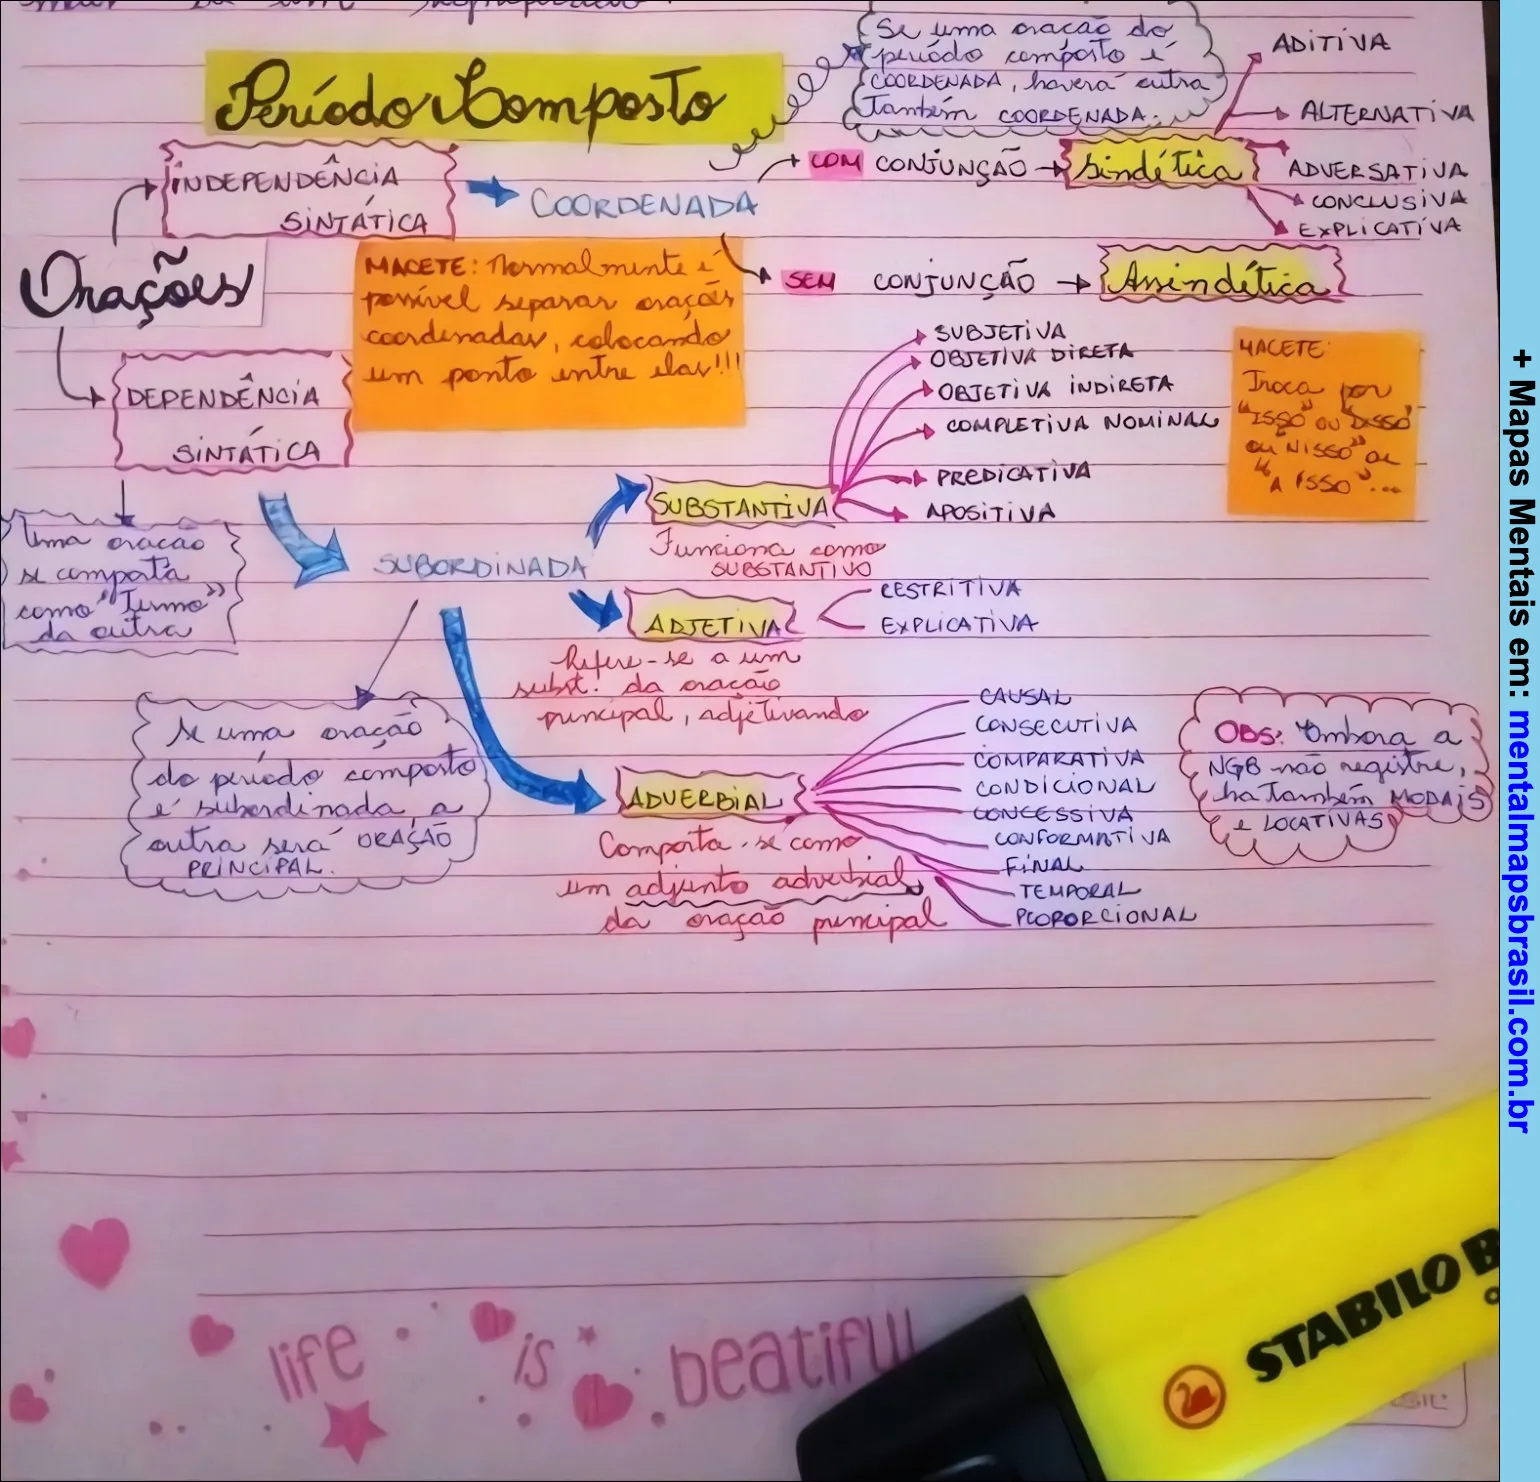 Período Composto
Se uma oração do
período composto é
COORDENADA, haverá outra
também COORDENADA.
INDEPENDÊNCIA
SINTÁTICA
COORDENADA
COM CONJUNÇÃO
Sindética
ADITIVA
ALTERNATIVA
ADVERSATIVA
CONCLUSIVA
EXPLICATIVA
SEM CONJUNÇÃO
Assindética
Orações
MACETE: Normalmente é
possível separar orações
coordenadas, colocando
um ponto entre elas!!!
DEPENDÊNCIA
SINTÁTICA
Uma oração
se comporta
como "Termo"
da outra
SUBORDINADA
SUBSTANTIVA
Funciona como
SUBSTANTIVO
SUBJETIVA
OBJETIVA DIRETA
OBJETIVA INDIRETA
COMPLETIVA NOMINAL
PREDICATIVA
APOSITIVA
MACETE:
Troca por
"ISSO" OU "DISSO"
ou "NISSO" ou
"A ISSO"...
ADJETIVA
RESTRITIVA
EXPLICATIVA
Refere-se a um
subst. da oração
principal, adjetivando
Se uma oração
do período composto
é subordinada, a
outra será ORAÇÃO
PRINCIPAL.
ADVERBIAL
Comporta-se como
um adjunto adverbial
da oração principal
CAUSAL
CONSECUTIVA
COMPARATIVA
CONDICIONAL
CONCESSIVA
CONFORMATIVA
FINAL
TEMPORAL
PROPORCIONAL
OBS: Embora a
NGB não registre,
há também MODAIS
e LOCATIVAS
life is beatiful
STABILO B
+ Mapas Mentais em: mentalmapsbrasil.com.br